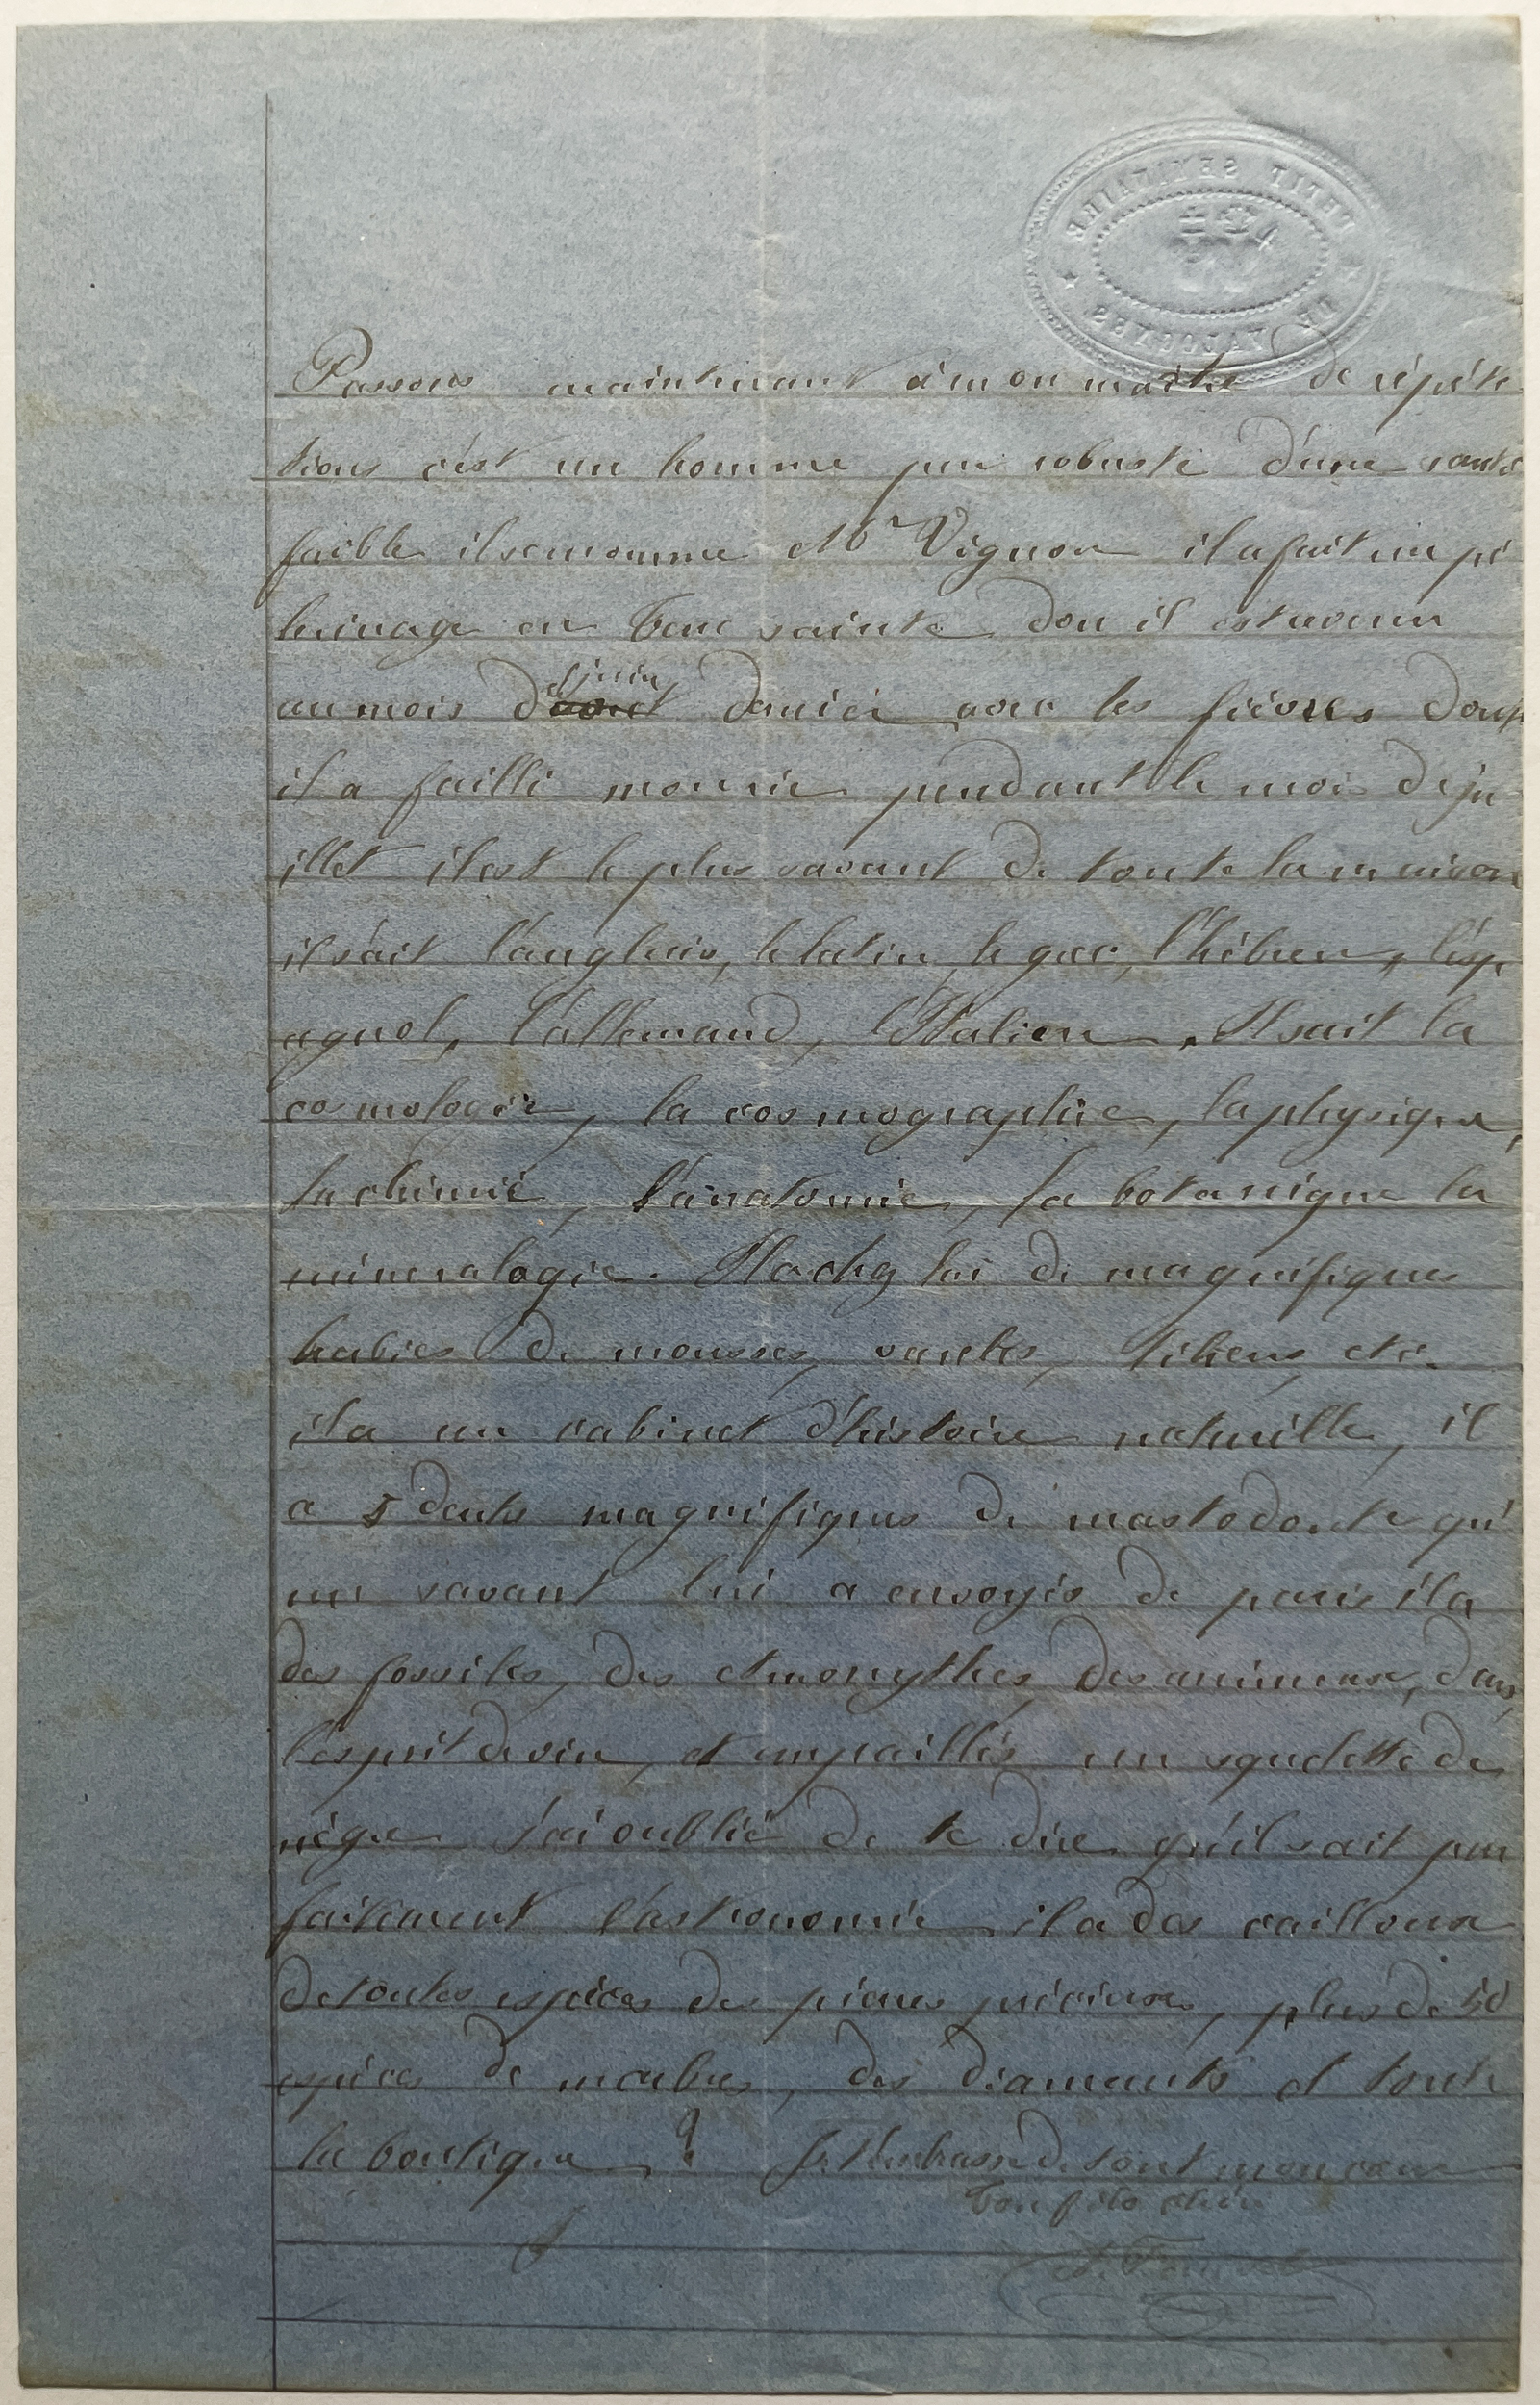 PETIT SEMINAIRE
DE VALOGNES
Passons maintenant à mon maitre de répéti
tions c'est un homme peu robuste d'une santé
faible il se nomme Mr Vignon il a fait un pé
lerinage en Terre sainte dou il est revenu
au mois d'aout juin dernier avec les fièvres dont
il a failli mourir pendant le mois de ju
illet il est le plus savant de toute la maison
il sait l'anglais, le latin, le grec, l'hébreu, l'esp
agnol, l'allemand, l'Italien. Il sait la
cosmologie, la cosmographie, la physique,
la chimie, l'anatomie, la botanique la
mineralogie. Il a chez lui de magnifiques
de mousses, lichens, etc.
il a un cabinet d'histoire naturelle, il
a 5 dents magnifiques de mastodonte qu'
un savant lui a envoyés de paris il a
des fossiles, des Amonythes, des animeaux, dans
l'esprit de vin, et empaillés un squelette de
nègre J'ai oublié de te dire qu'il sait par
faitement l'astronomie il a des cailloux
de toutes espèces des pierres précieuses, plus de 50
espèces de marbres, des diamants et toute
la boutique. Je t'embrasse de tout mon coeur
Ton fils chéri